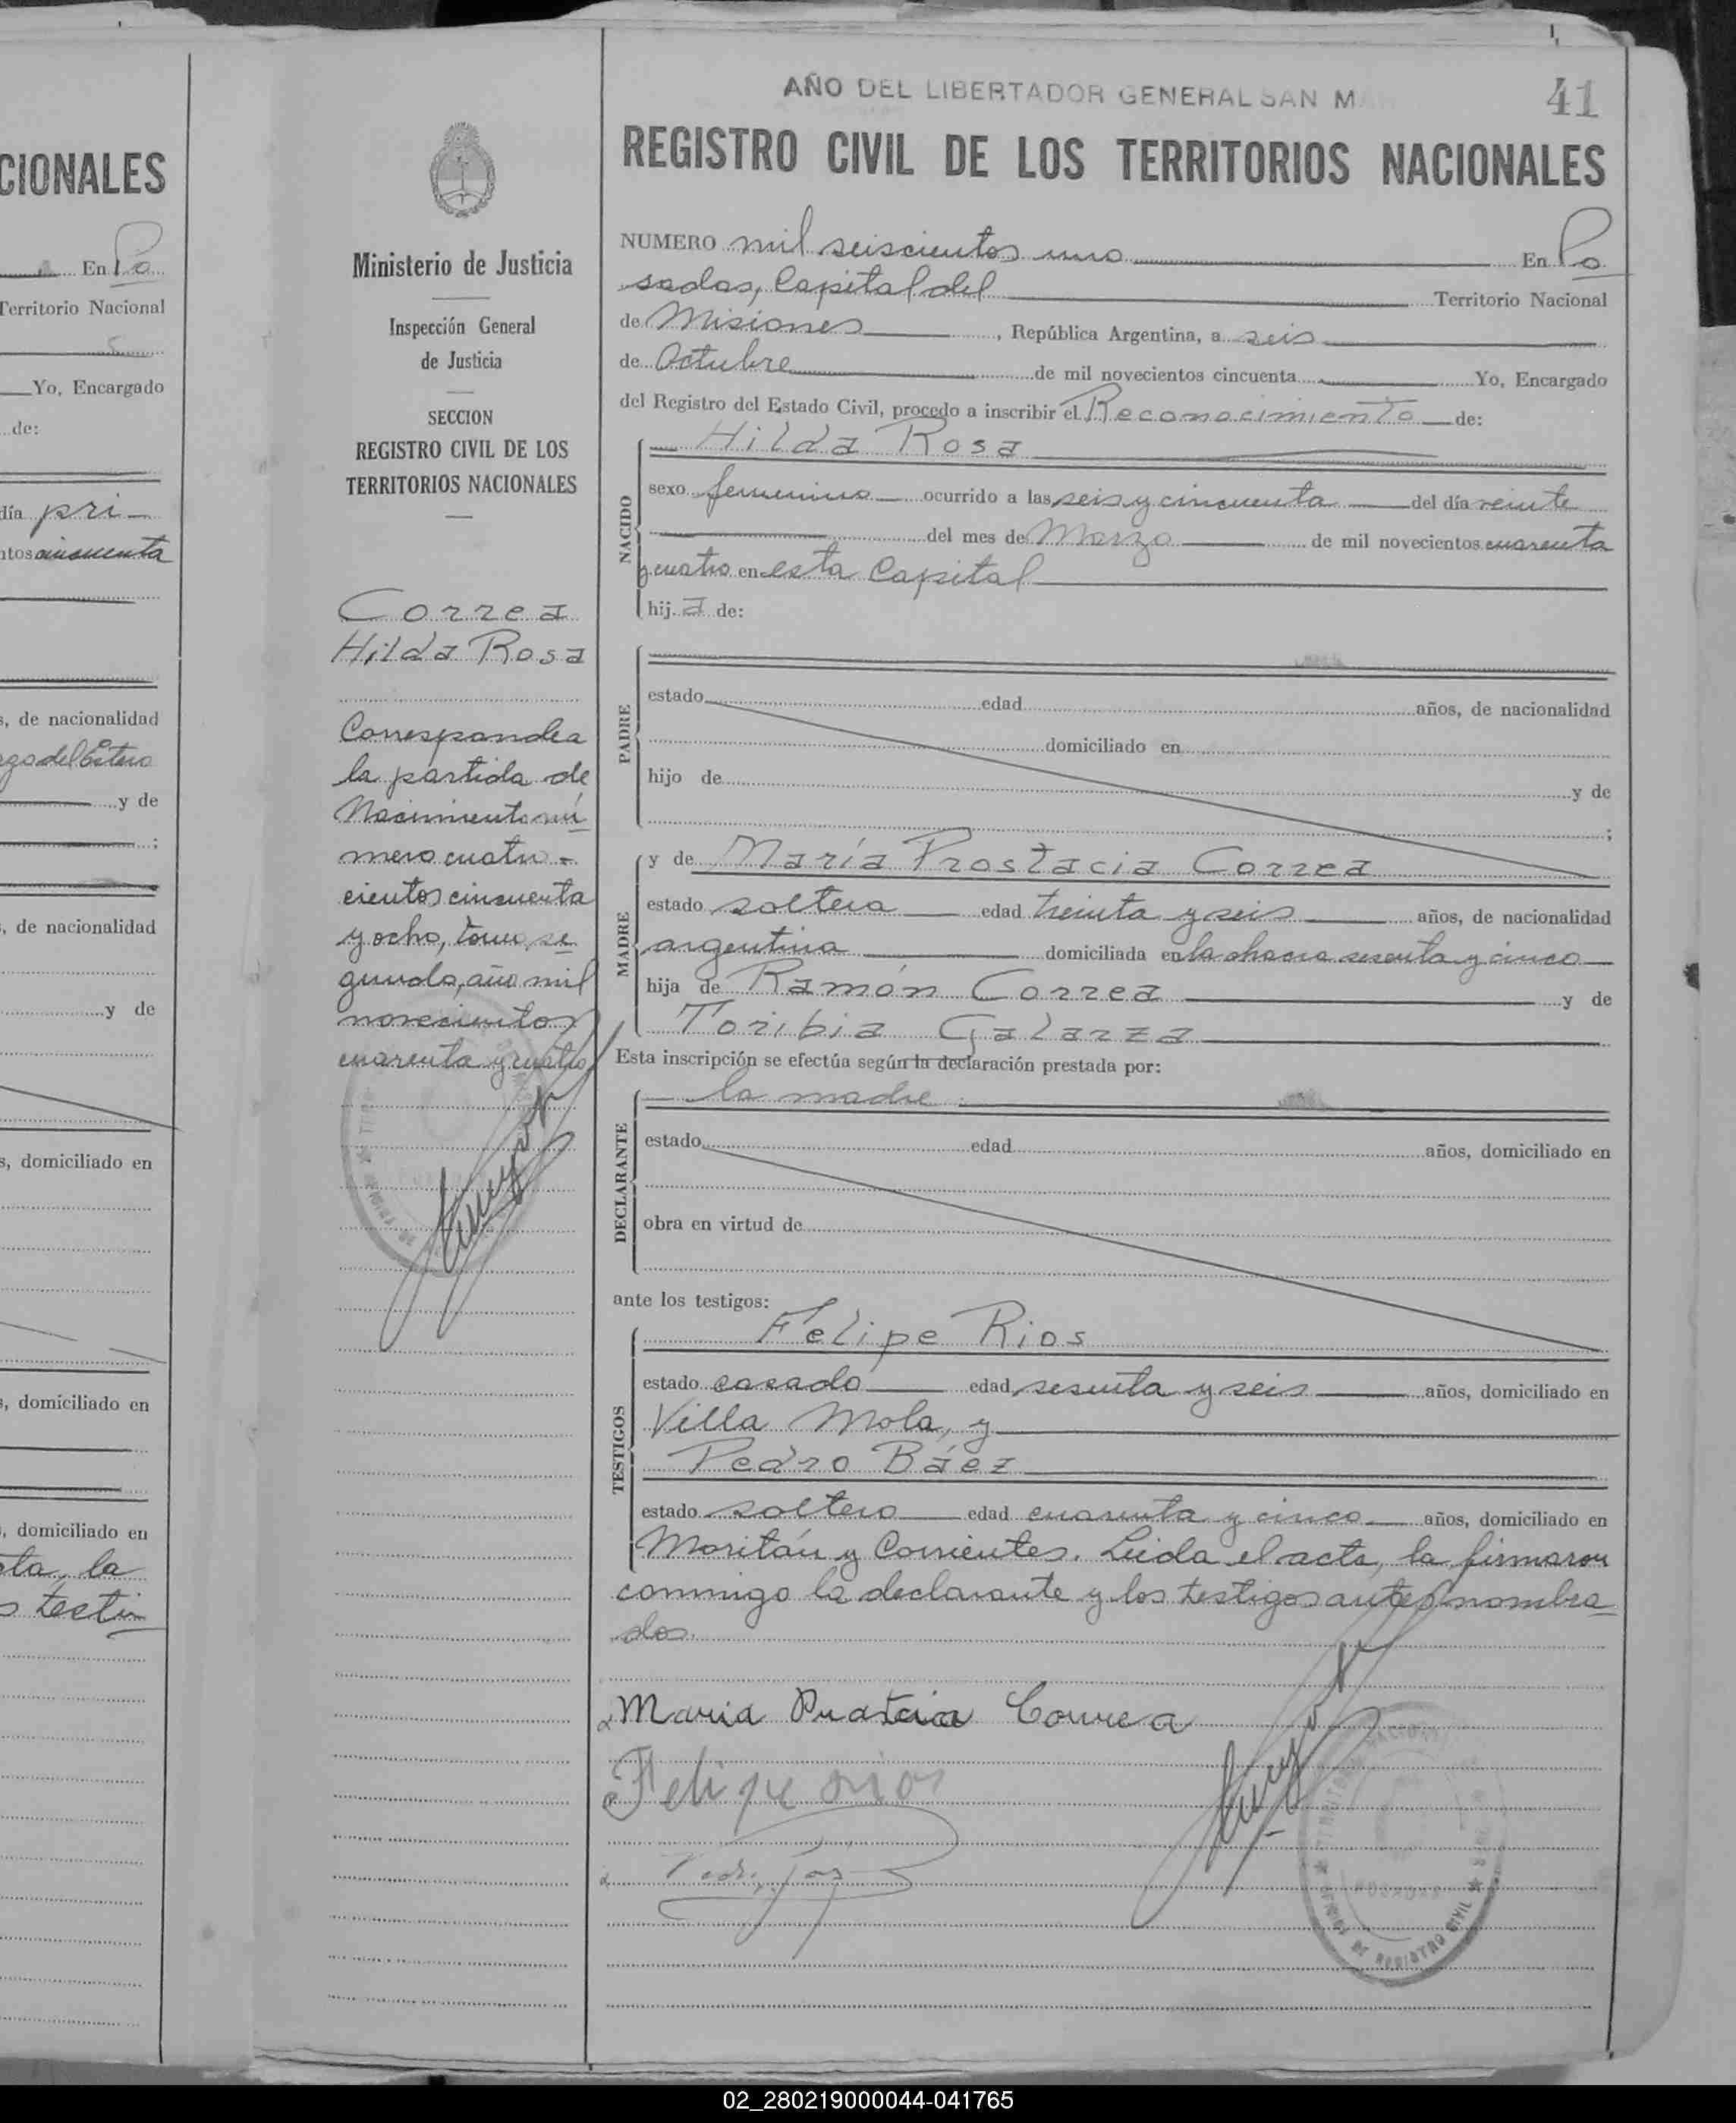 CIONALES
En Po
Territorio Nacional
Yo, Encargado
de:
día pri-
ntos cincuenta
s, de nacionalidad
ago del Estero
y de
;
s, de nacionalidad
y de
s, domiciliado en
s, domiciliado en
s, domiciliado en
la
s testi-
Ministerio de Justicia
Inspección General
de Justicia
SECCION
REGISTRO CIVIL DE LOS
TERRITORIOS NACIONALES
Correa
Hilda Rosa
Corresponde a
la partida de
Nacimiento nú
mero cuatro-
cientos cincuenta
y ocho, tomo, se
gundo, año mil
novecientos
cuarenta y cuatro
AÑO DEL LIBERTADOR GENERAL SAN MAR
41
REGISTRO CIVIL DE LOS TERRITORIOS NACIONALES
NUMERO mil seiscientos uno En Po
sadas, Capital del Territorio Nacional
de Misiones, República Argentina, a seis
de Octubre de mil novecientos cincuenta Yo, Encargado
del Registro del Estado Civil, procedo a inscribir el Reconocimiento de:
NACIDO
Hilda Rosa
sexo femenino ocurrido a las seis y cincuenta del día veinte
del mes de Marzo de mil novecientos cuarenta
y cuatro en esta Capital
hij a de:
PADRE
estado edad años, de nacionalidad
domiciliado en
hijo de y de
;
MADRE
y de María Prostacia Correa
estado soltera edad treinta y seis años, de nacionalidad
argentina domiciliada en la chacra sesenta y cinco
hija de Ramón Correa y de
Toribia Galarza
Esta inscripción se efectúa según la declaración prestada por:
DECLARANTE
la madre
estado edad años, domiciliado en
obra en virtud de
ante los testigos:
TESTIGOS
Felipe Rios
estado casado edad sesenta y seis años, domiciliado en
Villa Mola, y
Pedro Báez
estado soltero edad cuarenta y cinco años, domiciliado en
Moritán y Corrientes. Leida el acta, la firmaron
conmigo la declarante y los testigos antes nombra
dos.
Maria Prastcia Correa
Felipe rios
OFICINA DE REGISTRO CIVIL
POSADAS
02_280219000044-041765